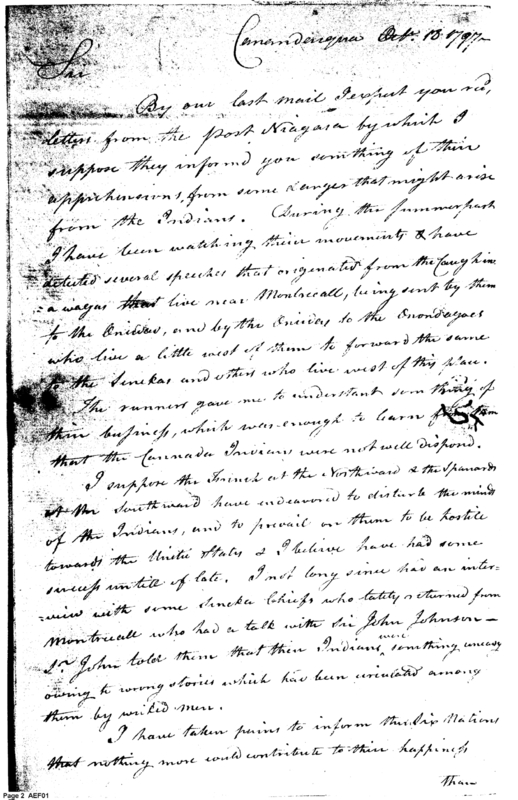 Canandaigua Octr. 13 1797
Sir
By our last mail I expect you recd,
letters from the post Niagara by which I
suppose they informd you somthing of their
apprihensions, from some danger that might arise
from the Indians. During the summer past
I have been watching their movements & have
detected several speeches that origenated from the Caughine
-awagas that live near Montrecall, being sent by them
to the Oneidas, and by the Oneidas to the Onondagoes
who live a little west of them to forward the same
to the Senekas and others who live west of this place.
The runners gave me to understant som thing of
their business, which was enough to learn from them
that the Cannada Indians were not well disposd.
I suppose the French at the Northward & the Spanards
at the Southward have endeavored to disturb the minds
of the Indians, and to prevail on them to be hostile
towards the United States & I believe have had some
success untill of late. I not long since had an inter-
-view with some Seneka Chiefs who lately returned from
Montrecall who had a talk with Sir John Johnson—
Sr. John told them that their Indians were somthing uneasy
owing to wrong stories which had been circulated among
them by wicked men.
I have taken pains to inform the Six Nations
that nothing more would contribute to their happiness
than
Page 2 AEF01